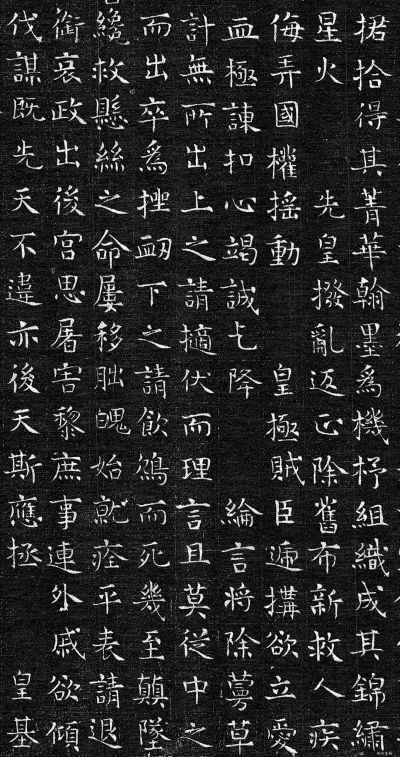 捃拾得其菁華翰墨為機杼組織成其錦繡
星火　先皇撥亂返正除舊布新救人疾
侮弄國權搖動　皇極賊臣遞搆欲立愛
血極諫扣心竭誠乞降　綸言將除蔓草
計無所出上之請擿伏而理言且莫從中之
而出卒為挫衄下之請飲鴆而死幾至顛墜
纔救懸絲之命屢移朏魄始就痊平表請退
銜哀政出後宮思屠害黎庶事連外戚欲傾
伐謀既先天不違亦後天斯應拯　皇基